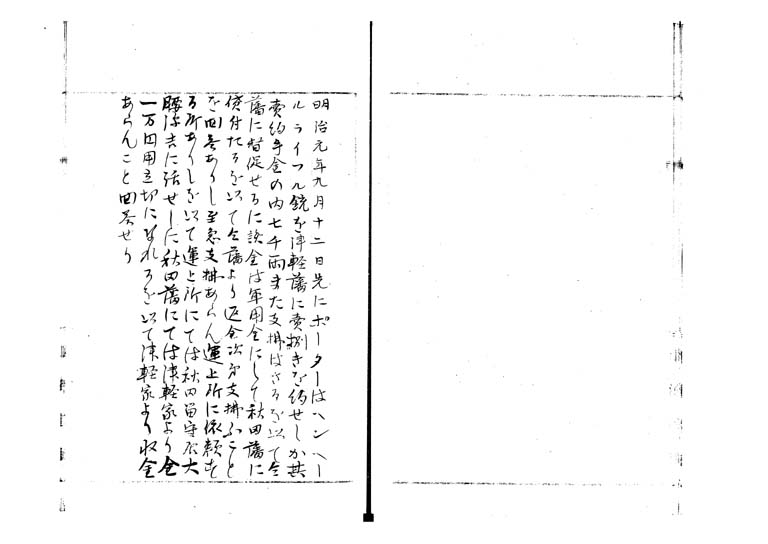 明治元年九月十二日先にポーターはヘンヘー
ルライフル銃を津軽藩に売捌きを約せしか其
売約手金の内七千両また支拂はさるを以て仝
藩に督促せるに該金は軍用金にして秋田藩に
貸付たるを以て仝藩より返金次第支拂ふこと
を回答ありし至急支拂あらん運上所に依頼す
る所ありしを以て運上所にては秋田留守居大
腰弥吉に話せしに秋田藩にては津軽家より仝
一万両用立切になれるを以て津軽家より収金
あらんこと回答せり